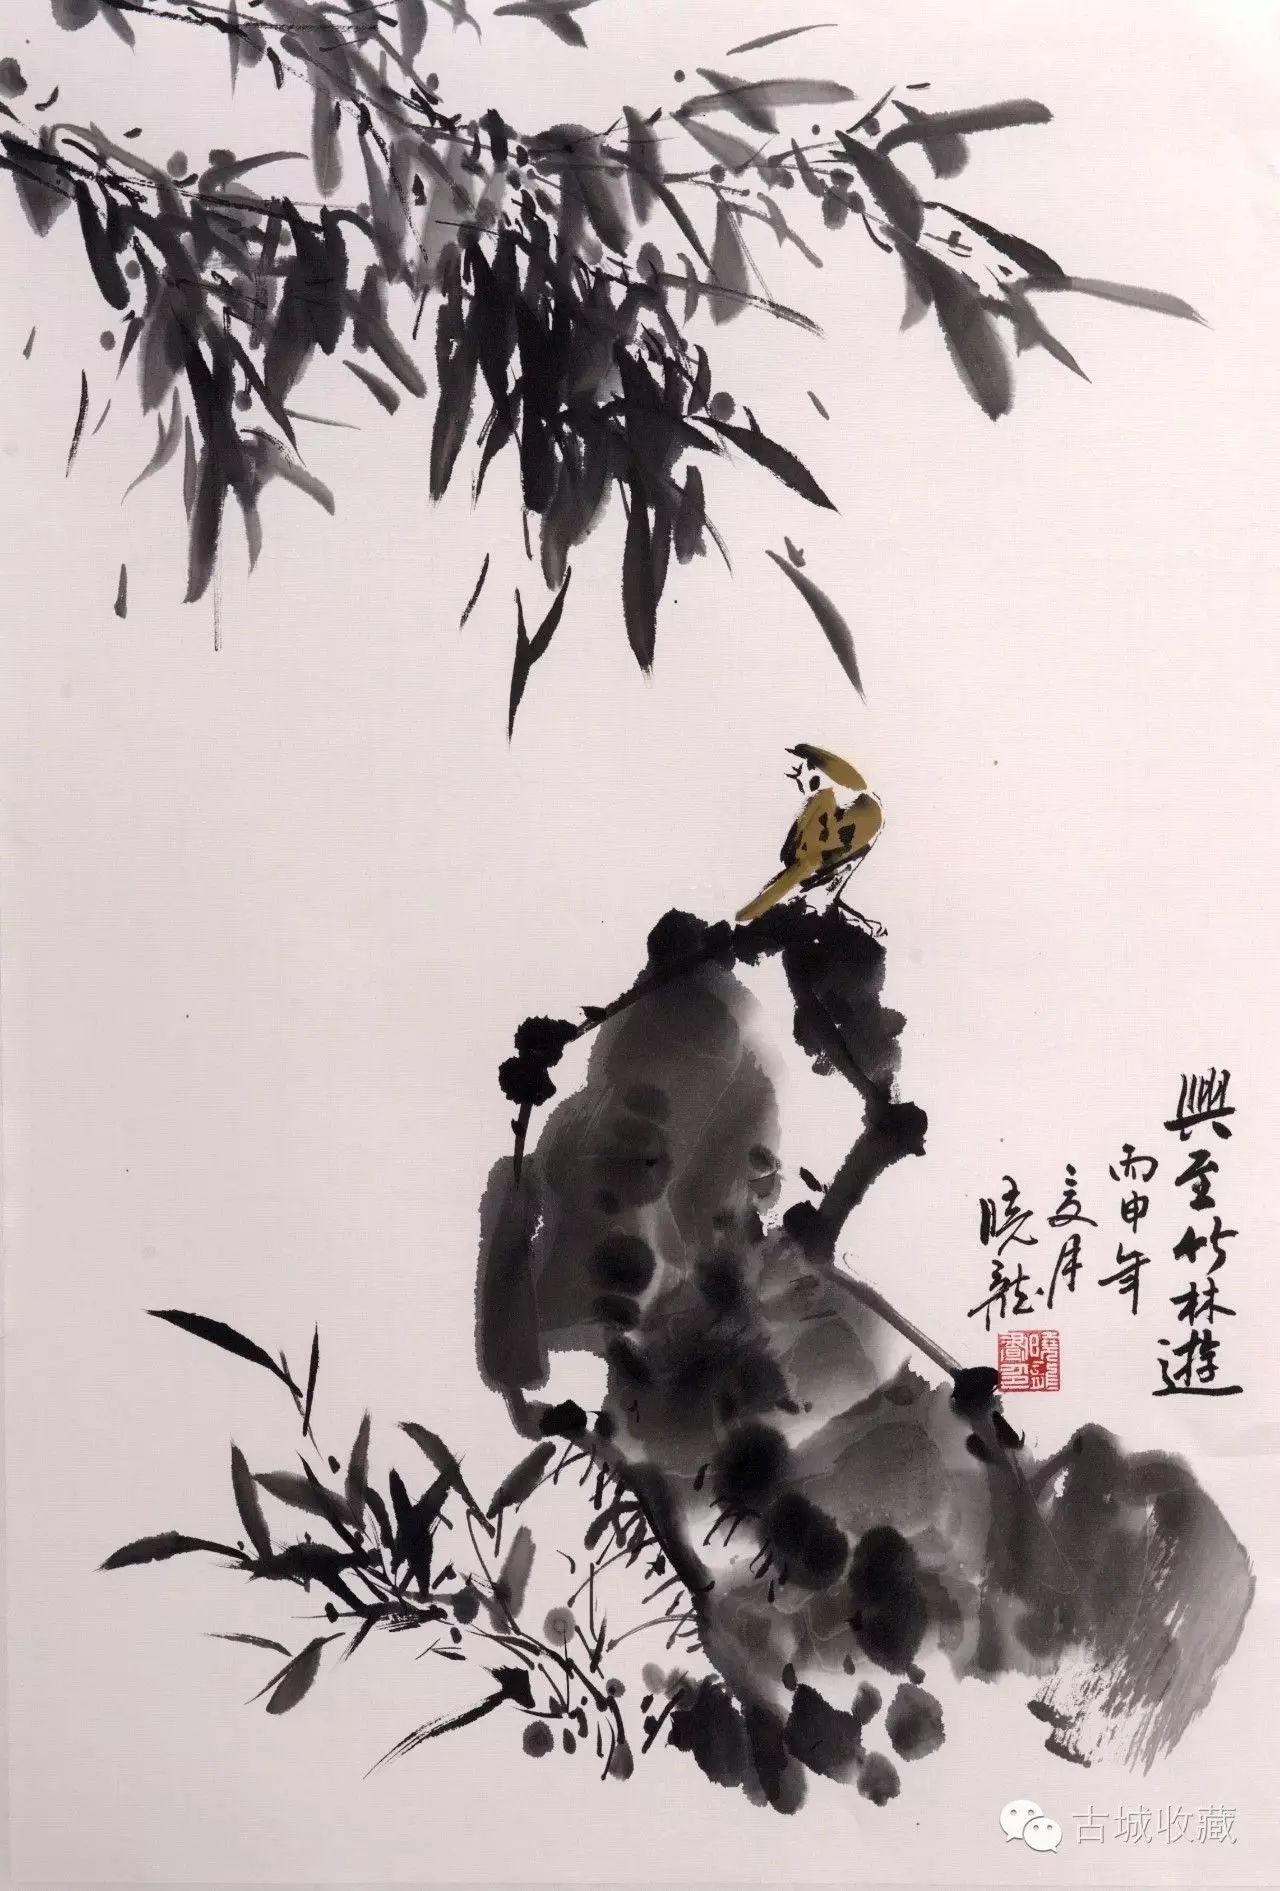 興至竹林遊
丙申年
夏月
曉龍
古城收藏